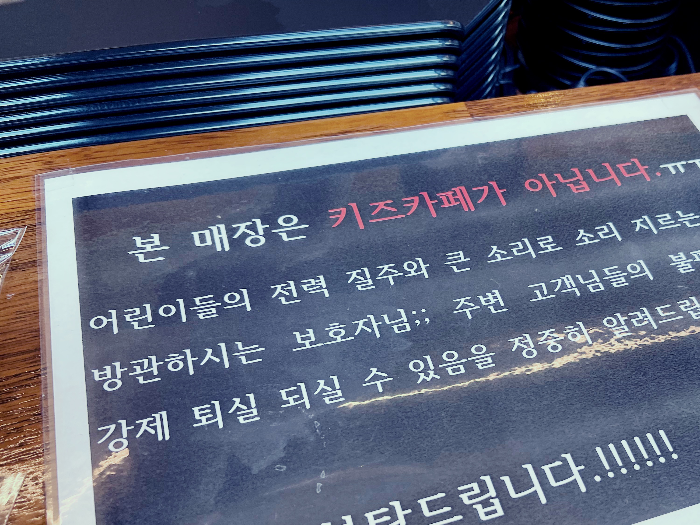 본 매장은 키즈카페가 아닙니다.ㅠㅠ
어린이들의 전력 질주와 큰 소리로 소리 지르는
방관하시는 보호자님;; 주변 고객님들의
강제 퇴실 되실 수 있음을 정중히
!!!!!!!